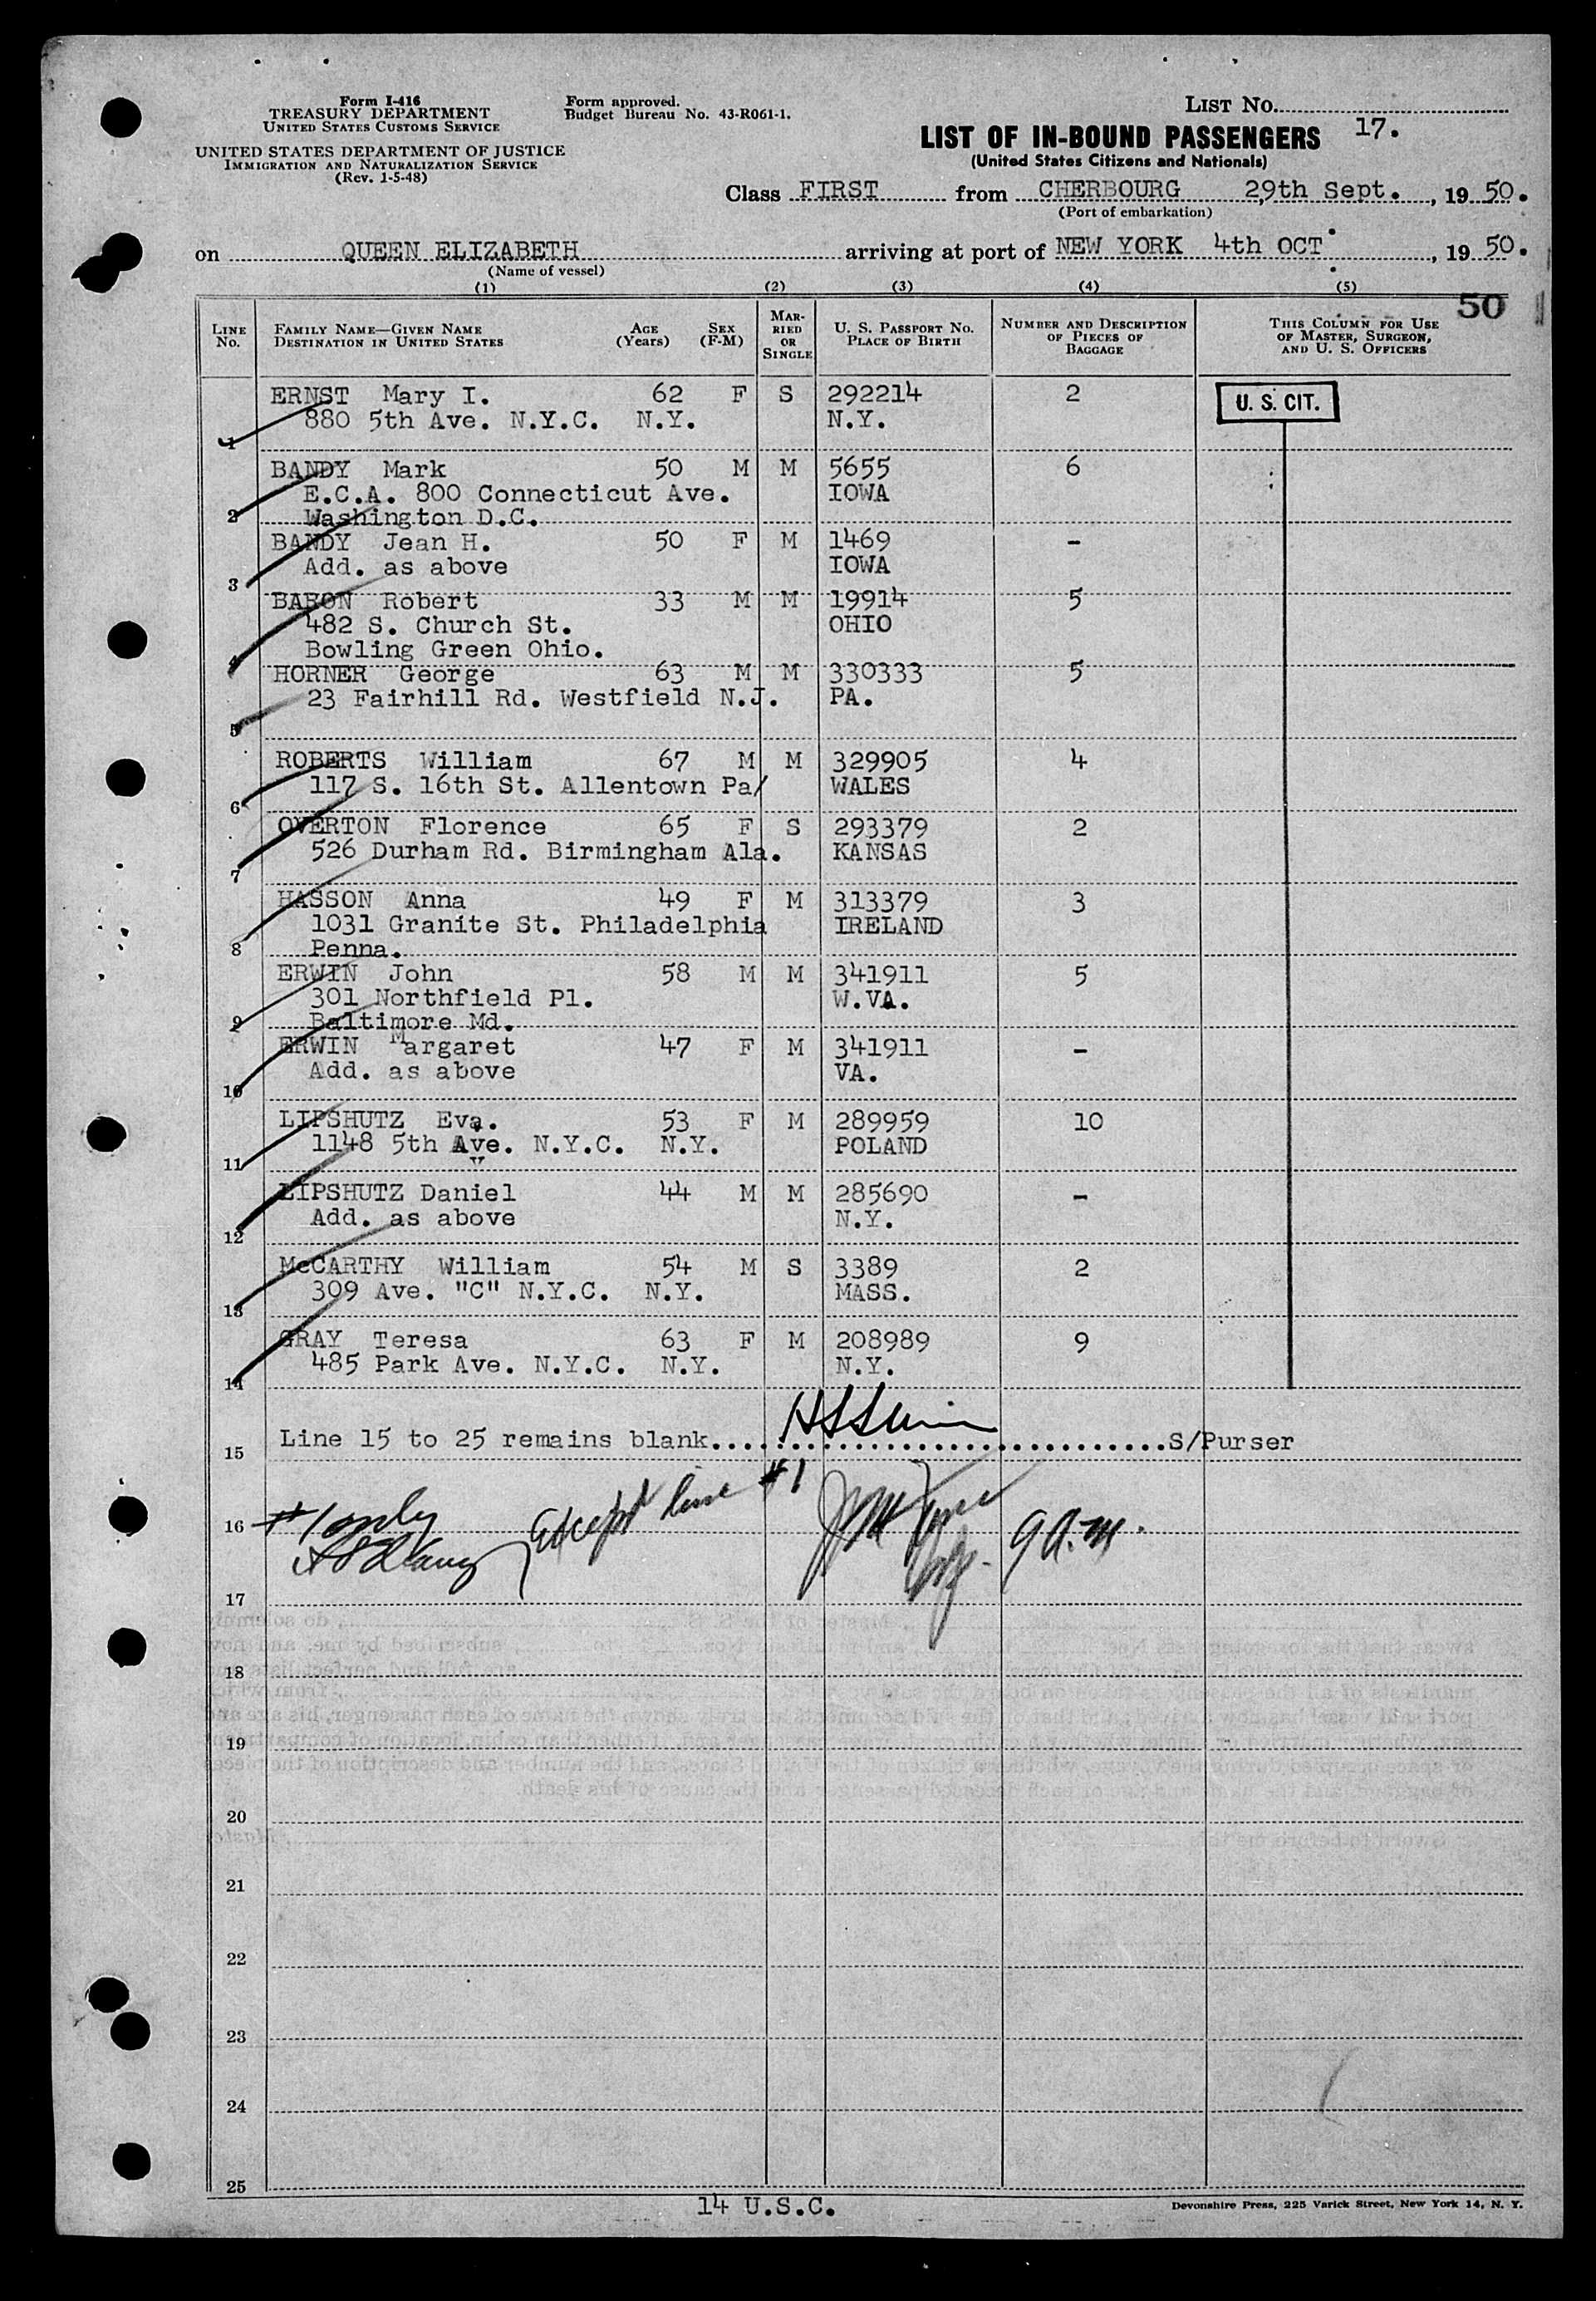 Form I-416
TREASURY DEPARTMENT
UNITED STATES CUSTOMS SERVICE
UNITED STATES DEPARTMENT OF JUSTICE
IMMIGRATION AND NATURALIZATION SERVICE
(Rev. 1-5-48)
Form approved.
Budget Bureau No. 43-R061-1.
LIST NO.
17.
LIST OF IN-BOUND PASSENGERS
(United States Citizens and Nationals)
Class FIRST from CHERBOURG 29th Sept., 1950.
(Port of embarkation)
on QUEEN ELIZABETH arriving at port of NEW YORK 4th OCT, 1950.
(Name of vessel)
(1) (2) (3) (4) (5)
50
LINE No. FAMILY NAME—GIVEN NAME DESTINATION IN UNITED STATES AGE (Years) SEX (F-M) MARRIED OR SINGLE U. S. PASSPORT NO. PLACE OF BIRTH NUMBER AND DESCRIPTION OF PIECES OF BAGGAGE THIS COLUMN FOR USE OF MASTER, SURGEON, AND U. S. OFFICERS
ERNST Mary I. 62 F S 292214 2 U. S. CIT.
1 880 5th Ave. N.Y.C. N.Y. N.Y.
BANDY Mark 50 M M 5655 6
E.C.A. 800 Connecticut Ave. IOWA
2 Washington D.C.
BANDY Jean H. 50 F M 1469 -
3 Add. as above IOWA
BARON Robert 33 M M 19914 5
482 S. Church St. OHIO
4 Bowling Green Ohio.
HORNER George 63 M M 330333 5
5 23 Fairhill Rd. Westfield N.J. PA.
ROBERTS William 67 M M 329905 4
6 117 S. 16th St. Allentown Pa/ WALES
OVERTON Florence 65 F S 293379 2
7 526 Durham Rd. Birmingham Ala. KANSAS
HASSON Anna 49 F M 313379 3
1031 Granite St. Philadelphia IRELAND
8 Penna.
ERWIN John 58 M M 341911 5
301 Northfield Pl. W.VA.
9 Baltimore Md.
ERWIN Margaret 47 F M 341911 -
10 Add. as above VA.
LIPSHUTZ Eva. 53 F M 289959 10
11 1148 5th Ave. N.Y.C. N.Y. POLAND
LIPSHUTZ Daniel 44 M M 285690 -
12 Add. as above N.Y.
McCARTHY William 54 M S 3389 2
13 309 Ave. "C" N.Y.C. N.Y. MASS.
GRAY Teresa 63 F M 208989 9
14 485 Park Ave. N.Y.C. N.Y. N.Y.
15 Line 15 to 25 remains blank S/Purser
16 #1 only Except line #1 9 a.m.
17
18
19
20
21
22
23
24
25
14 U.S.C.
Devonshire Press, 225 Varick Street, New York 14, N. Y.